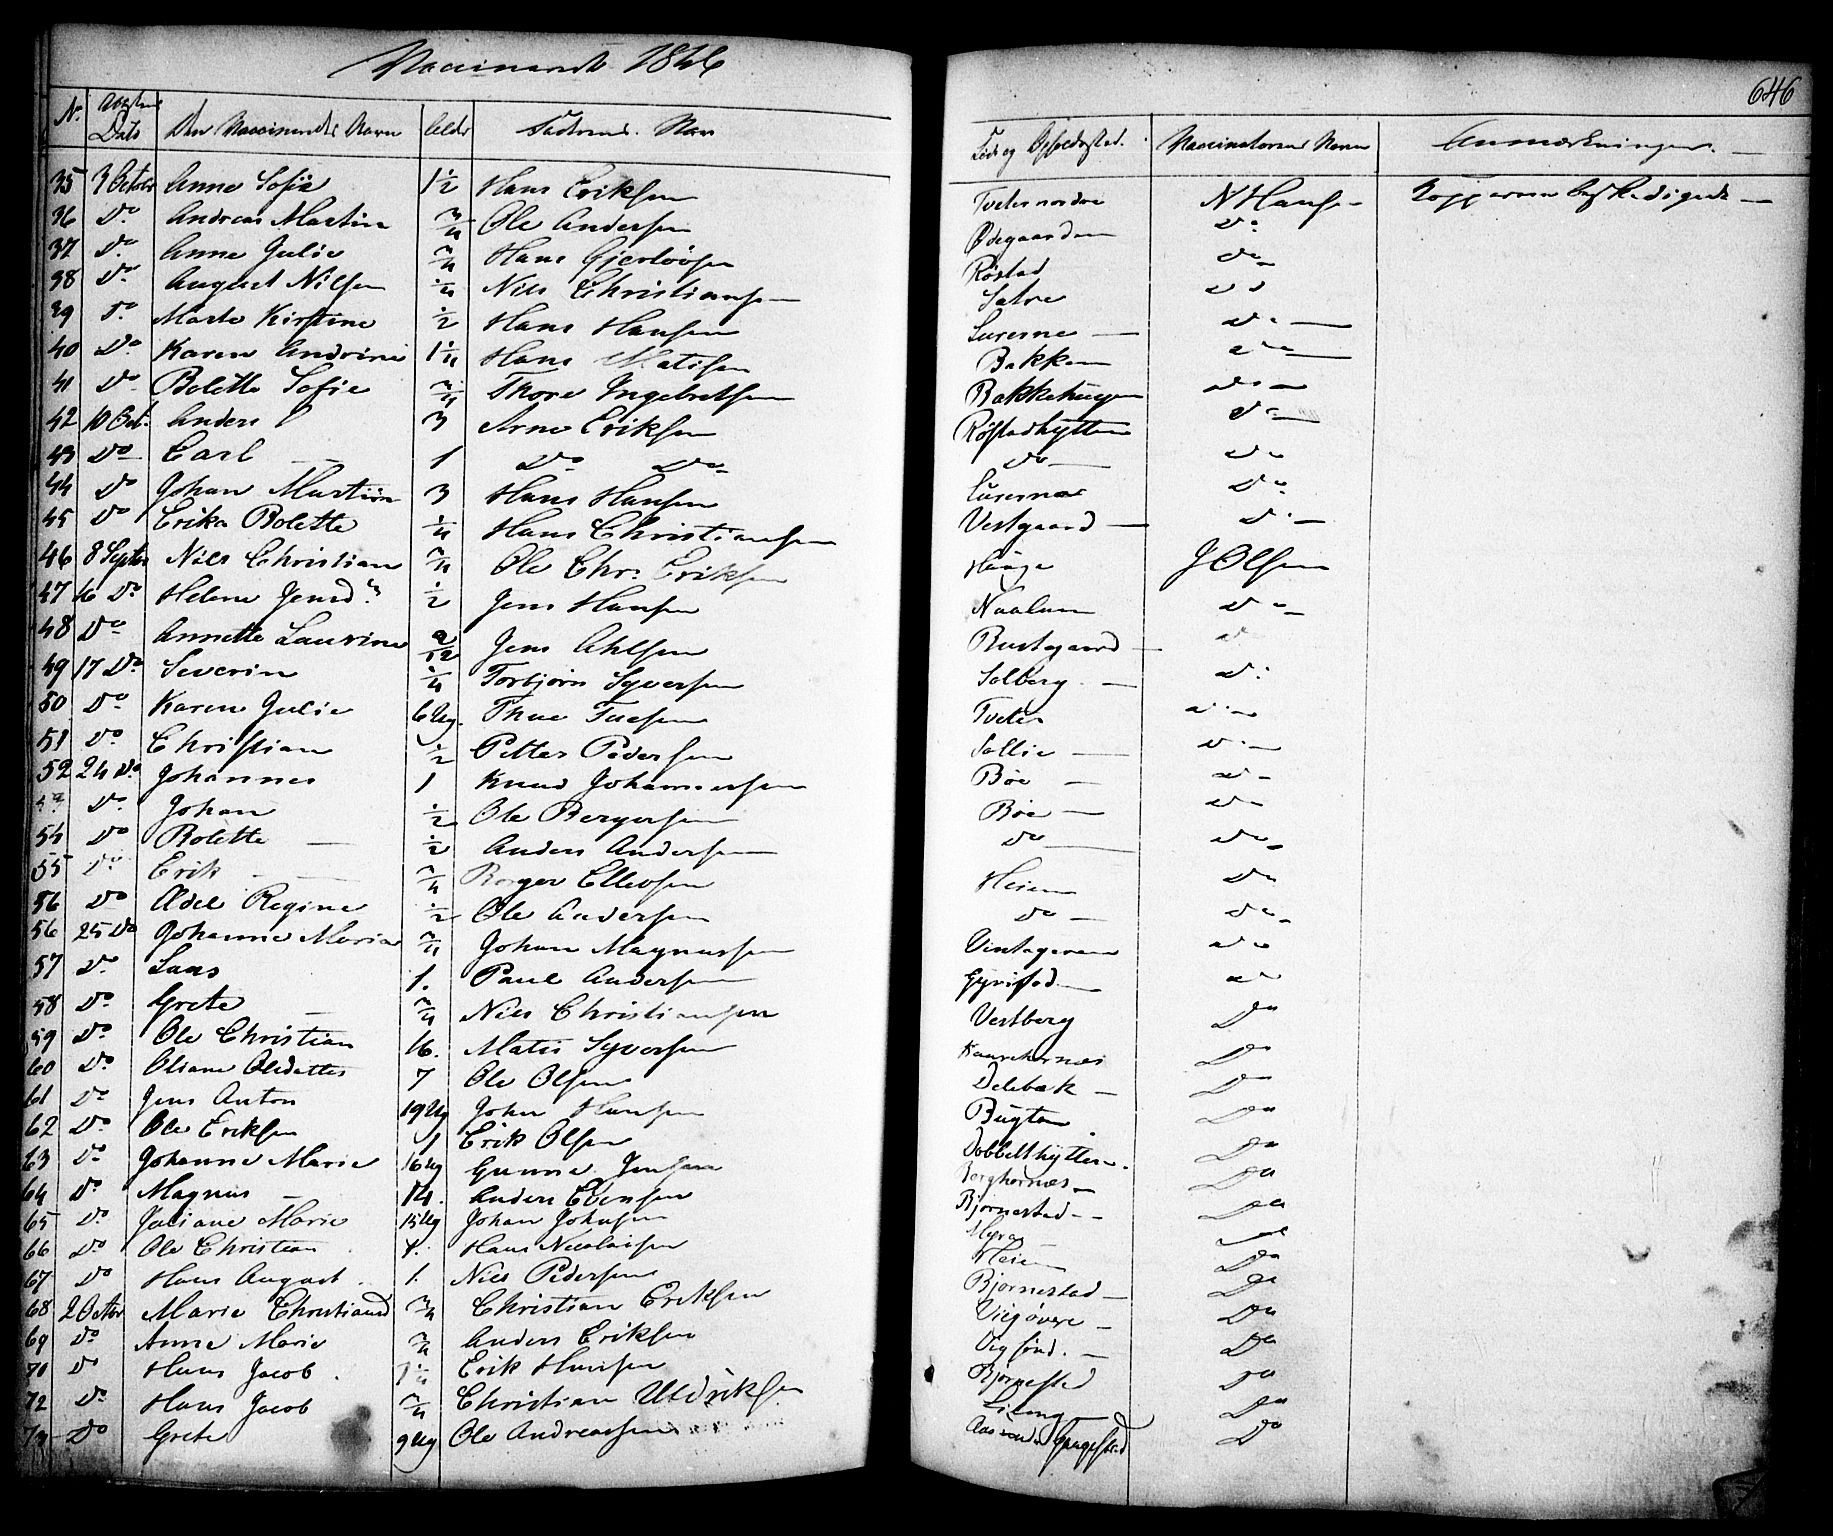 Vaccinerede 1846
646
No Dato Den Vaccineredes Navn Alder Fadrenes Navn Føde og Opholdssted. Vaccinatorens Navn Anmærkninger.
35 3 October Anne Sofie 1½ Hans Eriksen Tveter nordre N Hansen Kopperne beskadigede
36 Do Andreas Martin ¾ Ole Andersen Ødegaarden Do
37 Do Anne Julie ¾ Hans Gjerløvsen Røstad Do
38 Do August Nilsen ¼ Nils Christiansen Do
39 Do Marte Kirstine ½ Hans Hansen Lurerne Do
40 Do Karen Andrine 1¼ Hans Matisen Bakken Do
41 Do Bolette Sofie ¾ Thore Ingebretsen Bakkehugen Do
42 10 Oct. Anders 3 Arne Eriksen Røstadhytten Do
43 Do Carl 1 Do Do Do Do
44 Do Johan Martin 3 Hans Hansen Lurerne Do
45 Do Erika Bolette ¼ Hans Christiansen Vestgaard Do
46 8 Septbr Nils Christian ¾ Ole Chr. Eriksen Hauge J Olsen
47 16 Do Helene Jensd. ½ Jens Hansen Naalum Do
48 Do Annette Laurine 9/12 Jens Ahlsen Rustgaard Do
49 17 Do Severin ¼ Torbjørn Syversen Solberg Do
50 Do Karen Julie 6 Ug. Thue Tuesen Tveter Do
51 Do Christian ½ Petter Pedersen Sollie Do
52 24 Do Johannes 1 Knud Johannesen Bøe Do
Do Johan ½ Ole Bergersen Bøe Do
54 Do Bolette ½ Anders Andersen Do Do
55 Do Erik ¾ Borger Ellevsen Heien Do
56 Do Adel Regine ½ Ole Andersen Do Do
56 25 Do Johanne Maria ¾ Johan Magnussen Vintageren Do
57 Do Lars 1. Paul Andersen Do
58 Do Grete ¾ Nils Christiansen Vestberg Do
59 Do Ole Christian 16. Matis Syversen Kaurehornæs Do
60 Do Oliane Olidattes 7 Ole Olsen Delebæk Do
61 Do Jens Anton 19 Ug John Hansen Bugten Do
62 Do Ole Eriksen 1 Erik Olsen Dobbelthytten Do
63 Do Johanne Marie 16 Ug Gunne Jensen Berghornæs Do
64 Do Magnus 14. Anders Evensen Bjørnestad Do
65 Do Juliane Marie 15 Ug Johan Johnsen Myra
66 Do Ole Christian Hans Nicolaisen Heien Do
67 Do Hans August 1. Nils Pedersen Bjørnestad Do
68 2 Octbr Marie Christiansd ¾ Christian Eriksen Do
69 Do Anne Marie ¾ Anders Eriksen Do
Do Hans Jacob 1¼ Erik Hansen Bjørnestad Do
72 Do Hans Jacob ¾ Christian Uldriksen Do
Do Grete 9 Ug Ole Andreassen Do